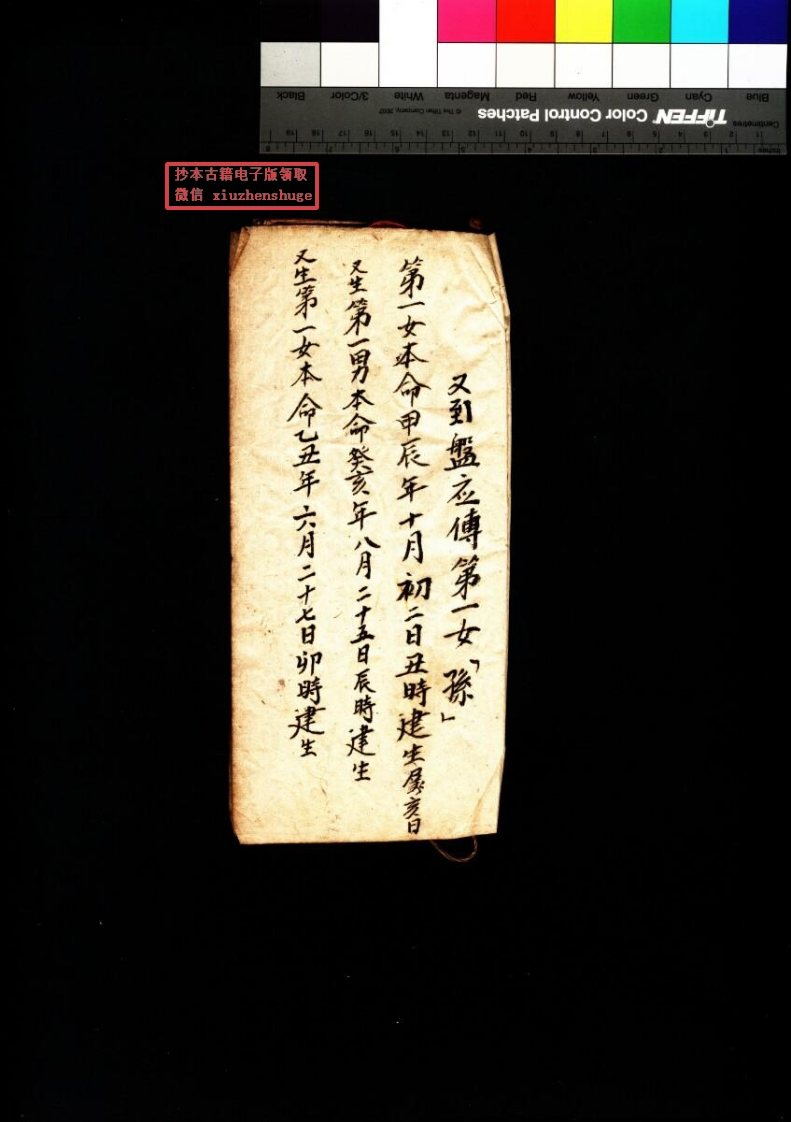 Blue Cyan Green Yellow Red Magenta White 3/Color Black
TIFFEN Color Control Patches © The Tiffen Company, 2007
Centimetres
Inches
抄本古籍电子版领取
微信 xiuzhenshuge
又到盤应傳第一女「孫」
第一女本命甲辰年十月初二日丑時建生屬亥日
又生第一男本命癸亥年八月二十五日辰時建生
又生第一女本命乙丑年六月二十七日卯時建生